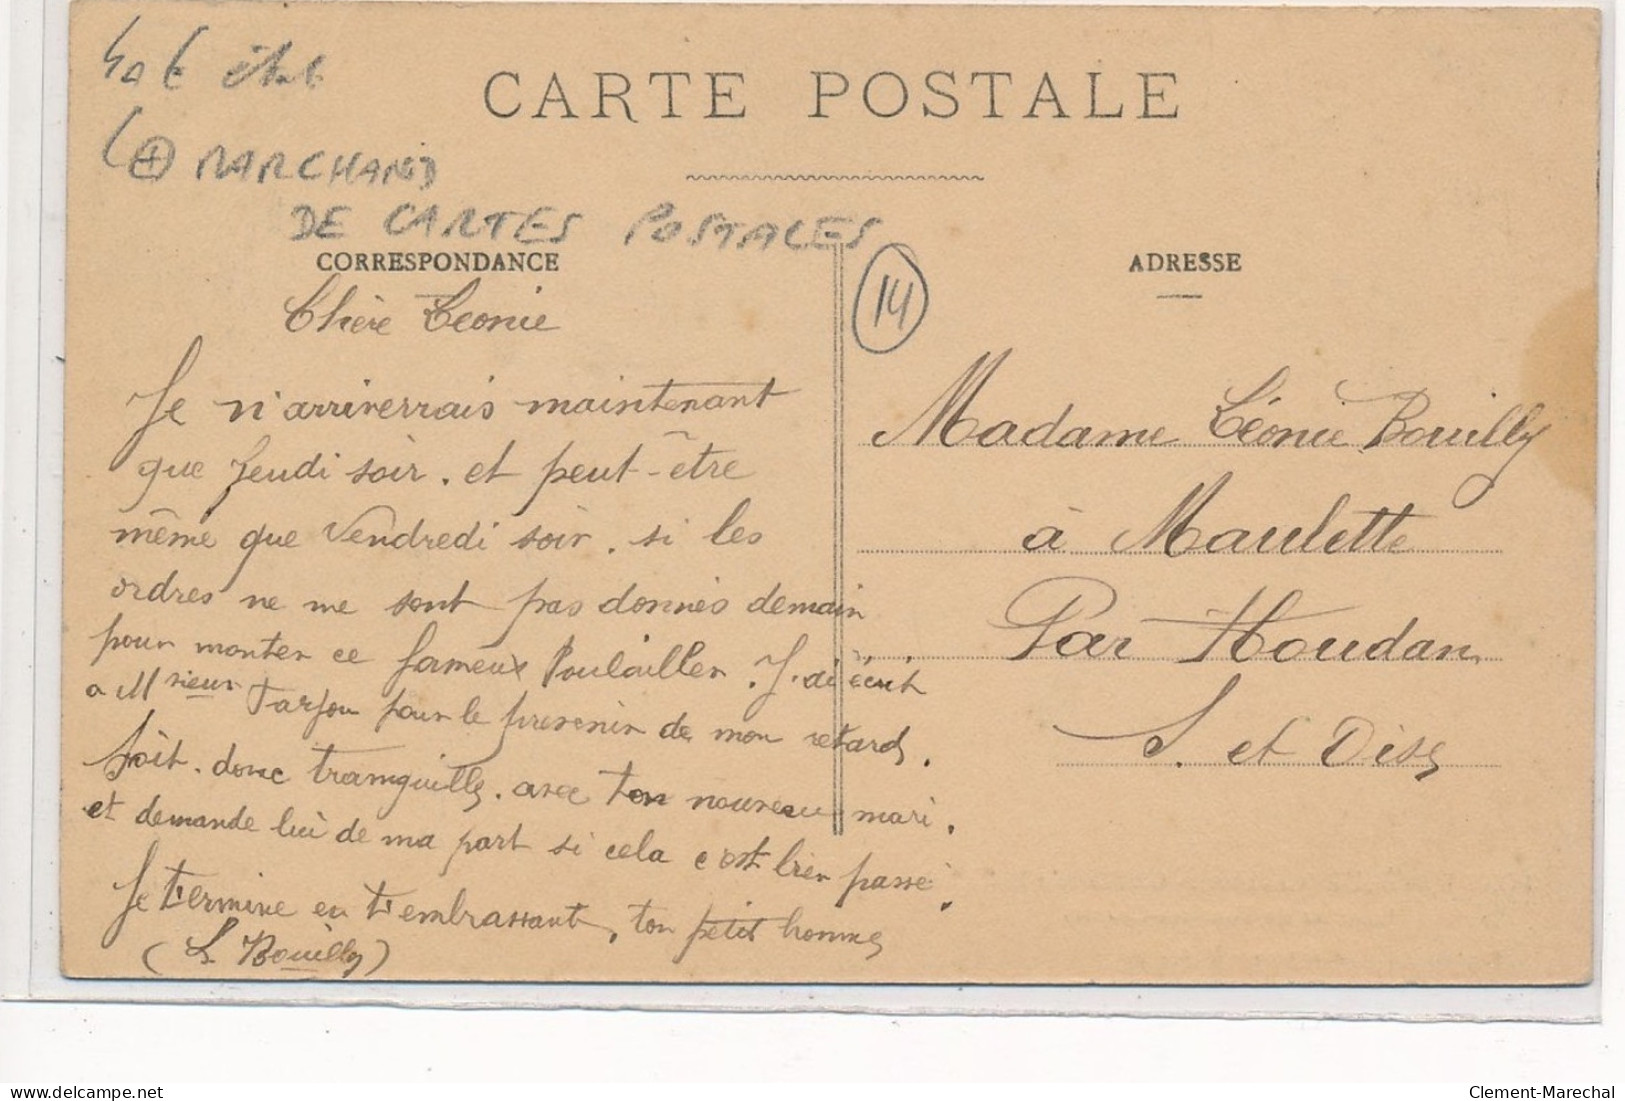 40 € état
+ MARCHAND
DE CARTES POSTALES
CARTE POSTALE
CORRESPONDANCE
14
ADRESSE
Chère Léonie
Je n'arriverrais maintenant
que Jeudi soir. et peut-être
même que Vendredi soir. si les
ordres ne me sont pas donnés demain
pour monter ce fameux Poulailler. J'ai écrit
a Msieur pour le prevenir de mon retard.
Soit. donc tranquille. avec ton nouveau mari.
et demande lui de ma part si cela c'est bien passé.
Je termine en t'embrassant, ton petit homme
(L. Bouilly)
Madame Léonie Bouilly
à Maulette
Par Houdan
S. et Oise
delcampe.net
Clement-Marechal